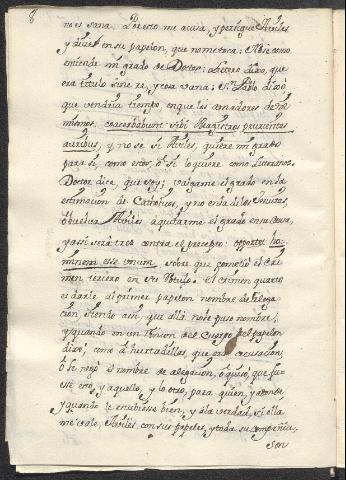 8
no es sana. Por esto me acusa, y persigue Aviles
y dice en su papelon, que no me toca: No sè como
entiende mi grado de Doctor: Lutero dixo, que
era titulo sine re, y cosa vana; Sn. Pablo dixò
que vendria tiempo en que los amadores de si
mismos, coacerbabunt sibi Magistros prurientes
auribus, y no se si Aviles, quiere mi grado
para si, como estos, ò si lo quiere como Luterano.
Doctor dice, que soy; valgame el grado en la
estimacion de Catholicos, y no en la de los Jesuitas,
ò buelva Aviles a quitarme el grado en su Cova,
y assi serà tres contra el precepto: oportet ho-
minem esse unum, sobre que cometiò el Cri-
men tercero en su Titulo. El crimen quarto
es darle al primer papelon nombre de alega-
cion, siendo assi, que allà no le puso nombre,
y quando en un rincon del Cuerpo del papelon
dixo, como à hurtadillas, que era acusacion,
ò si negò el nombre de alegacion, ò quiso, que fu-
esse esto, y aquello, y lo otro, para quien, y adonde,
y quando le estubiesse bien, y à la verdad, si ella
me vale, Aviles con sus papeles, y toda su compañia,
son